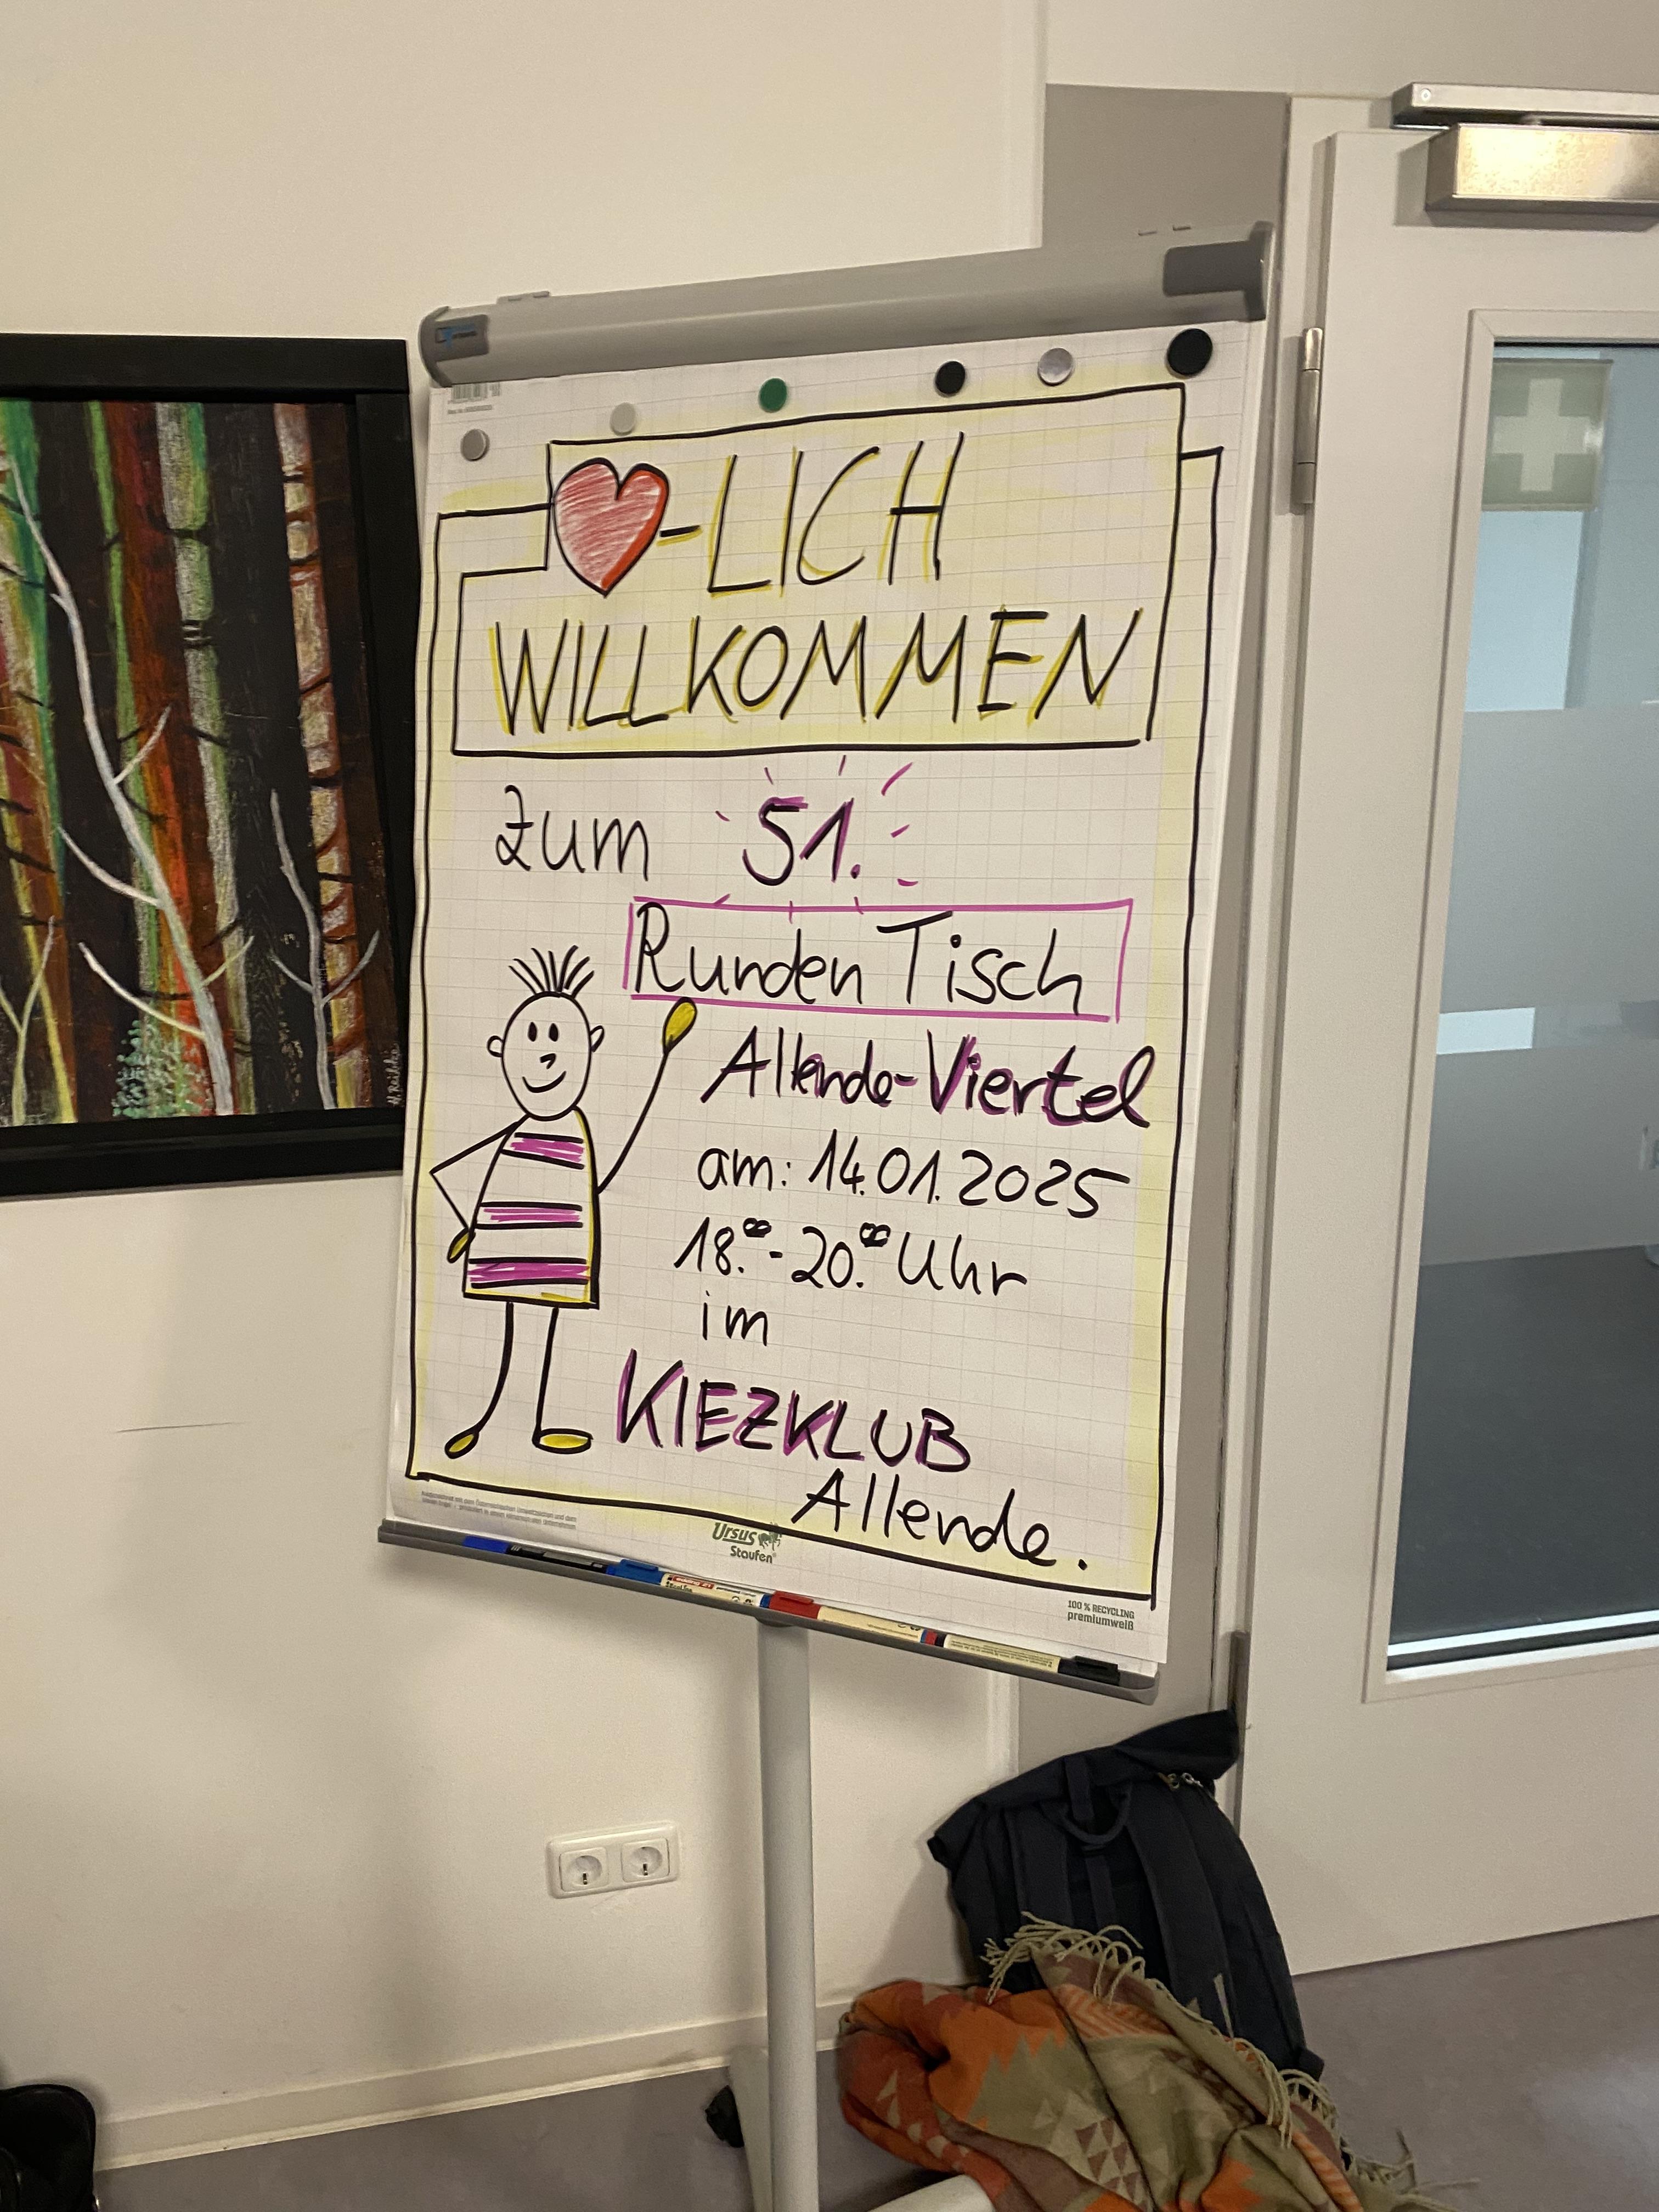 ❤-LICH
WILLKOMMEN
zum 51.
Runden Tisch
Allende-Viertel
am: 14.01.2025
18.⁰⁰-20.⁰⁰ Uhr
im
KIEZKLUB
Allende.
Ursus
Staufen®
100 % RECYCLING
premiumweiß
H. Reihke